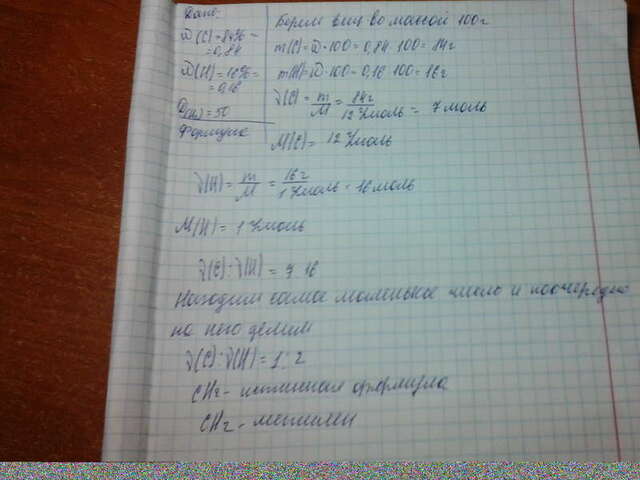 Дано:
ω(C)=84%=
=0,84
ω(H)=16%=
=0,16
D(H₂)=50
Формула
Берем вещ во массой 100г
m(C)=ω·100=0,84·100=84г
m(H)=ω·100=0,16·100=16г
ν(C)=m/M=84г/12г/моль=7 моль
M(C)=12г/моль
ν(H)=m/M=16г/1г/моль=16 моль
M(H)=1г/моль
ν(C):ν(H)=7:16
Находим самое маленькое число и поочередно
на него делим
ν(C):ν(H)=1:2
CH₂- истинная формула
CH₂- метилен